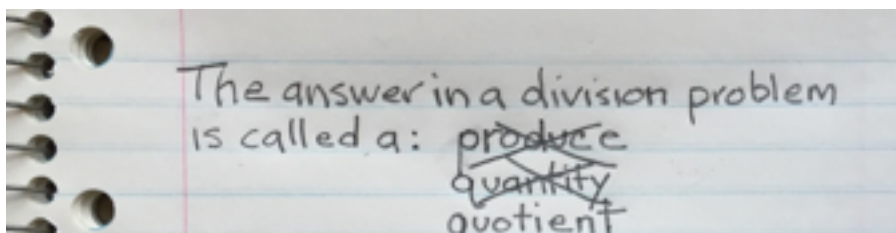 The answer in a division problem
is called a: produce
quantity
quotient